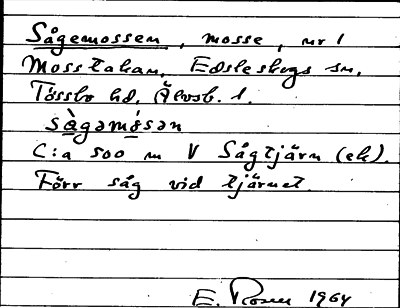 Sågemossen, mosse, nr 1
Mosstakan, Edsleskogs sn,
Tössbo hd, Älvsb. l.
sàgamósan
C:a 500 m V Sågtjärn (ek).
Förr såg vid tjärnet.
E. Rosen 1964